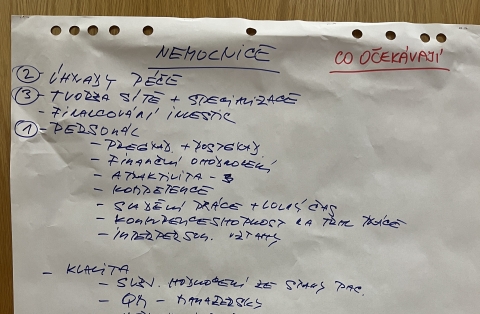 NEMOCNICE
CO OČEKÁVAJÍ
② - ÚHRADY PÉČE
③ - TVORBA SÍTĚ + SPECIALIZACE
- FINANCOVÁNÍ INVESTIC
① - PERSONÁL
- PŘEHLED +
- FINANČNÍ OHODNOCENÍ
- ATRAKTIVITA -
- KOMPETENCE
- SLADĚNÍ PRÁCE + VOLNÝ ČAS
- KONKURENCESCHOPNOST NA TRHU PRÁCE
- INTERPERSON. VZTAHY
- KVALITA
- SUBJ. HODNOCENÍ ZE STRANY PAC.
- QM - MANAŽERSKÝ